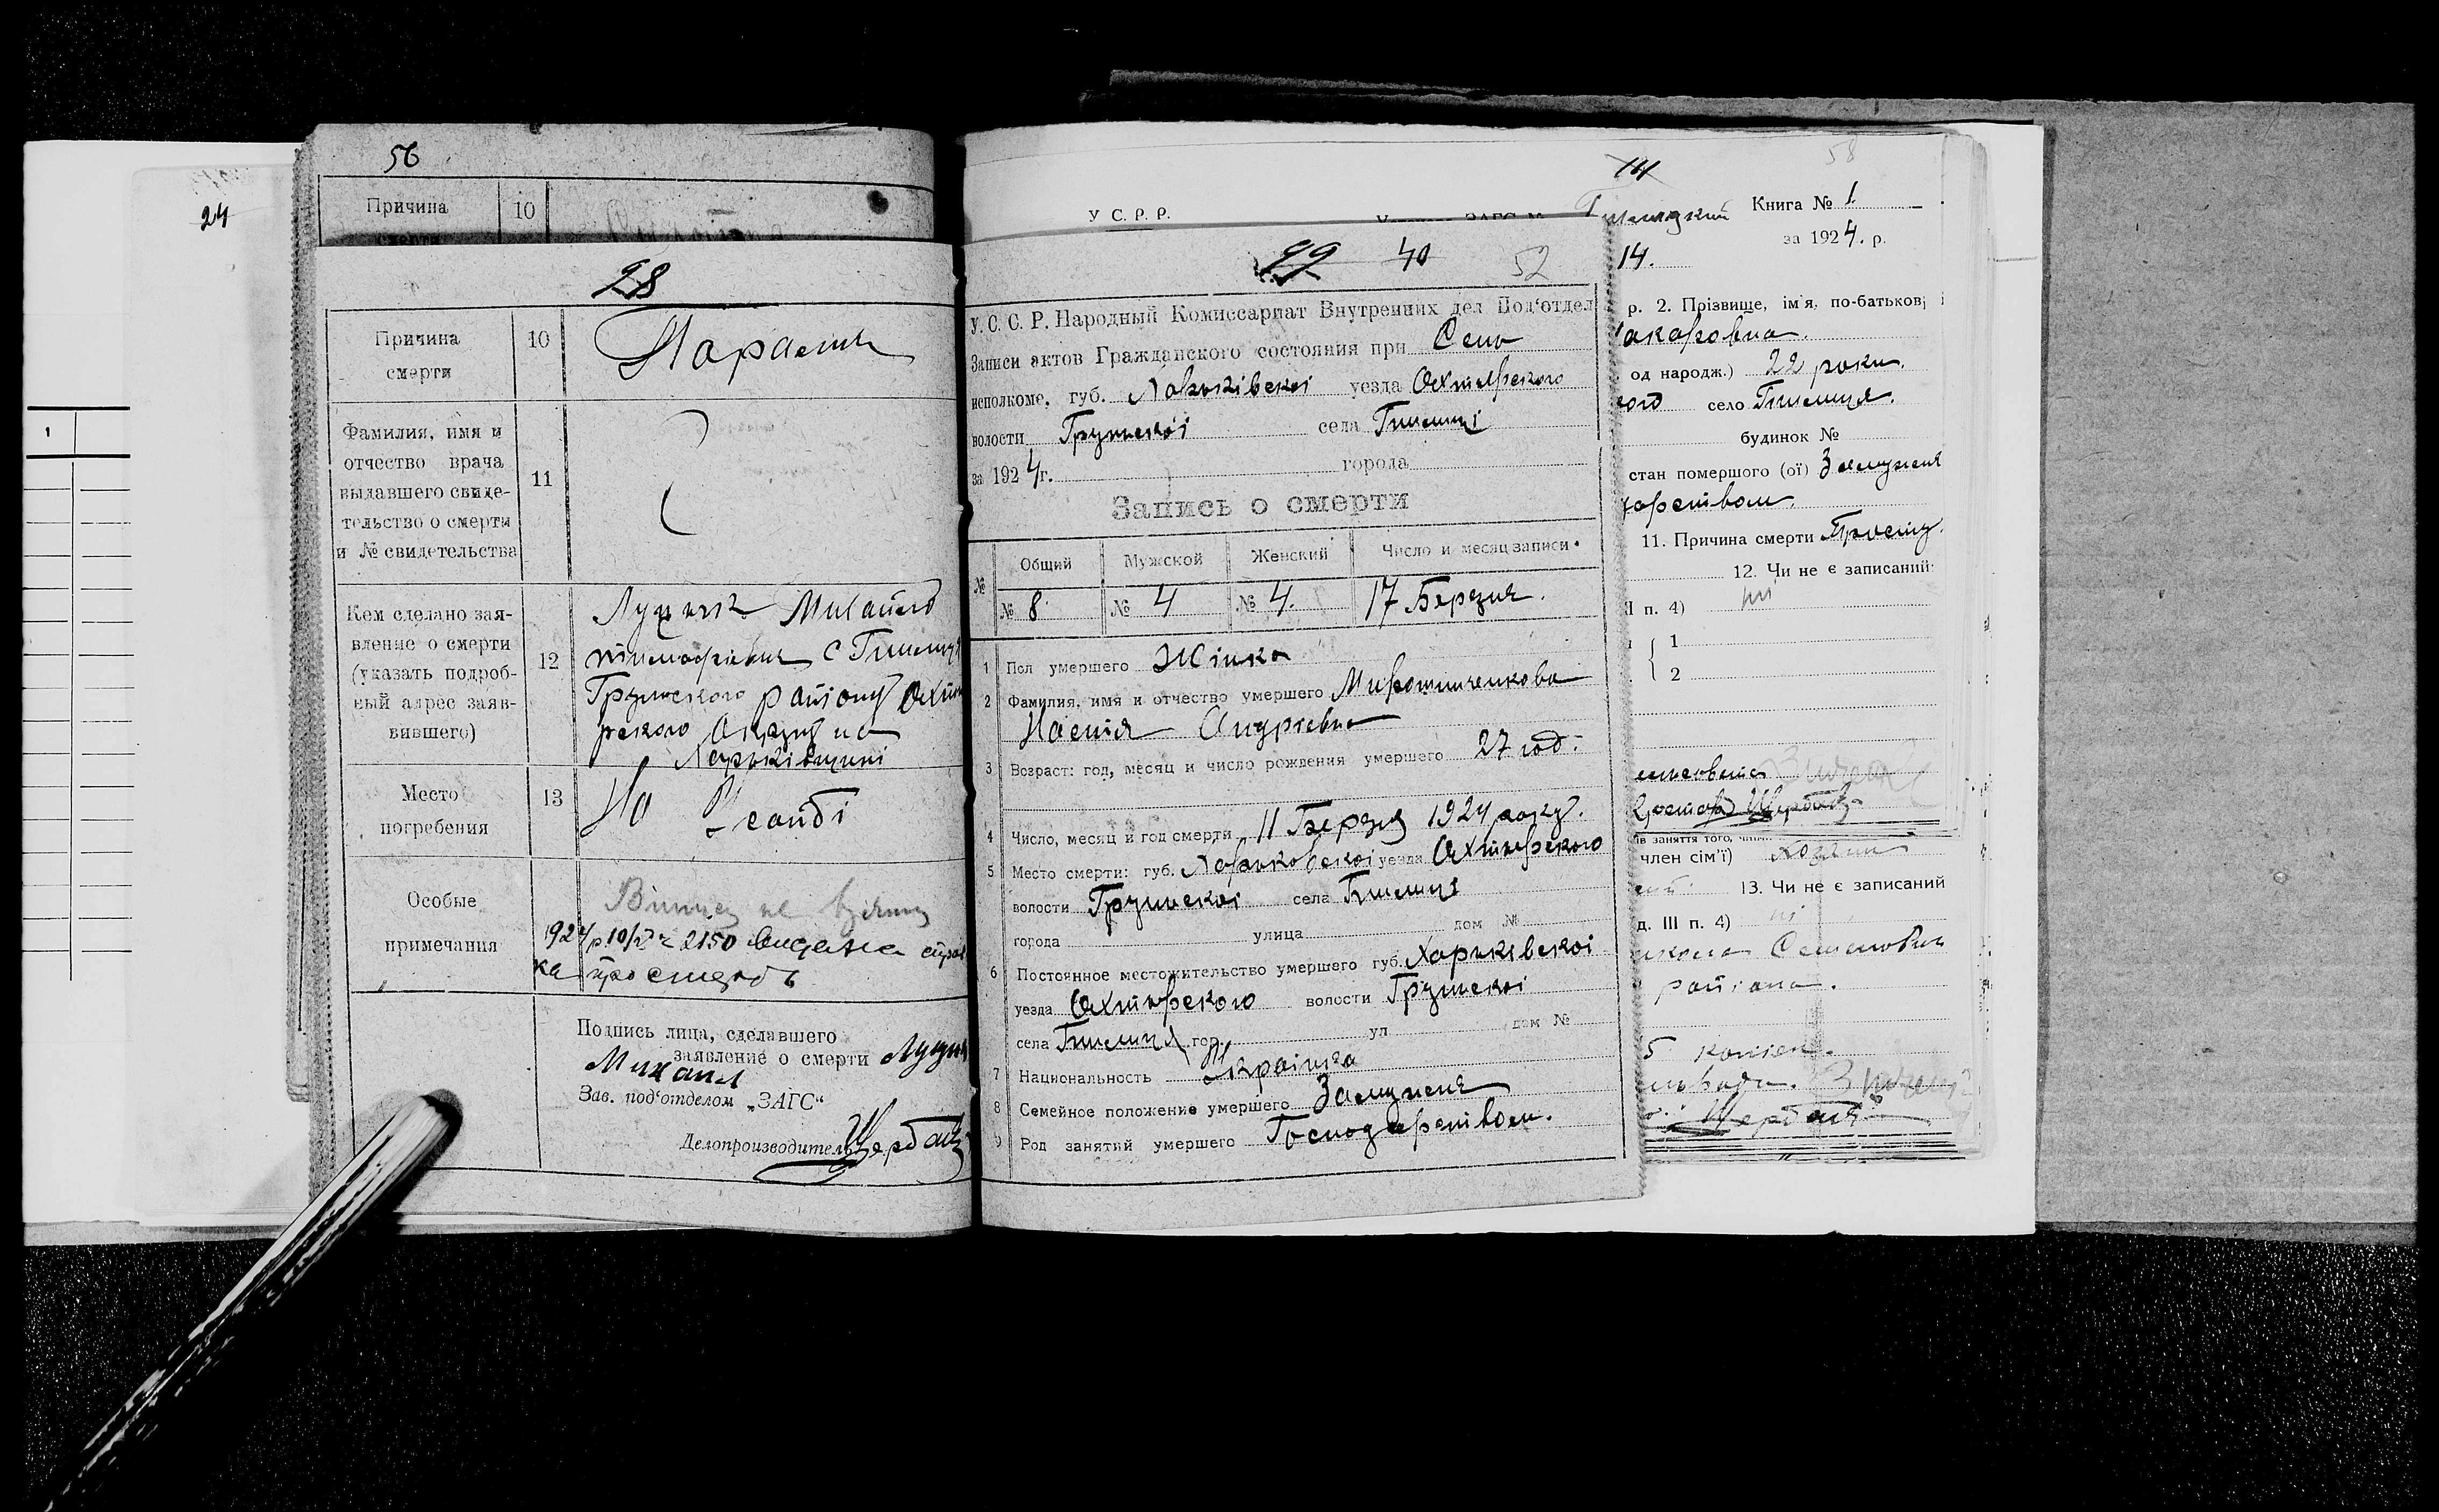 24
1
56
Причина 10
смерти
28
Причина
смерти
10
Фамилия, имя и
отчество врача
выдавшего свиде-
тельство о смерти
и № свидетельства
11
Кем сделано зая-
вление о смерти
(указать подроб-
ный адрес заяв-
вившего)
12
с Гнилиці
Грунського району Охти
рского Округу на
Харьківщині
Место
погребения
13
На
Особые
примечания
Випису не взятий
1924 р 10/V № 2150 видана справ
ка про смерть
Подпись лица, сделавшего
заявление о смерти
Михаил
Зав. под'отделом „ЗАГС“
Делопроизводитель Щербань
У С. Р. Р.
99 40 52
У. С. С. Р. Народный Комиссариат Внутренних дел Под'отдел
Записи актов Гражданского состояния при Сель
исполкоме, губ. Харьківскоі уезда Охтирского
волости Грунськоі села Гнилиці
за 1924г. города
Запись о смерти
№ Общий Мужской Женский Число и месяц записи
№ 8 № 4 № 4. 17 Березня.
1 Пол умершего Жінка
2 Фамилия, имя и отчество умершего Мирошниченкова
Настія Андріевна
3 Возраст: год, месяц и число рождения умершего 27 год.
4 Число, месяц и год смерти 11 Березня 1924 року.
5 Место смерти: губ. Харьковськоі уезда Охтирського
волости Грунськоі села Гнилиці
города улица дом №
6 Постоянное местожительство умершего губ. Харьківскоі
уезда Охтирского волости Грунскоі
села Гнилиця гор. ул дом №
7 Национальность Украінка
8 Семейное положение умершего Замужня
9 Род занятий умершего Господарством.
58
Книга № 1
за 1924. р.
14.
р. 2. Прізвище, ім'я, по-батькові
акаровна.
од народж.) 22 роки.
ого село Гнилиця.
будинок №
стан помершого (ої) Замужня
дарством.
11. Причина смерти
12. Чи не є записаний
П п. 4) ні
1
2
Щербань
ів заняття того,
член сім'ї)
13. Чи не є записаний
д. III п. 4) ні
Семенович
района.
5 копіек.
Щербань